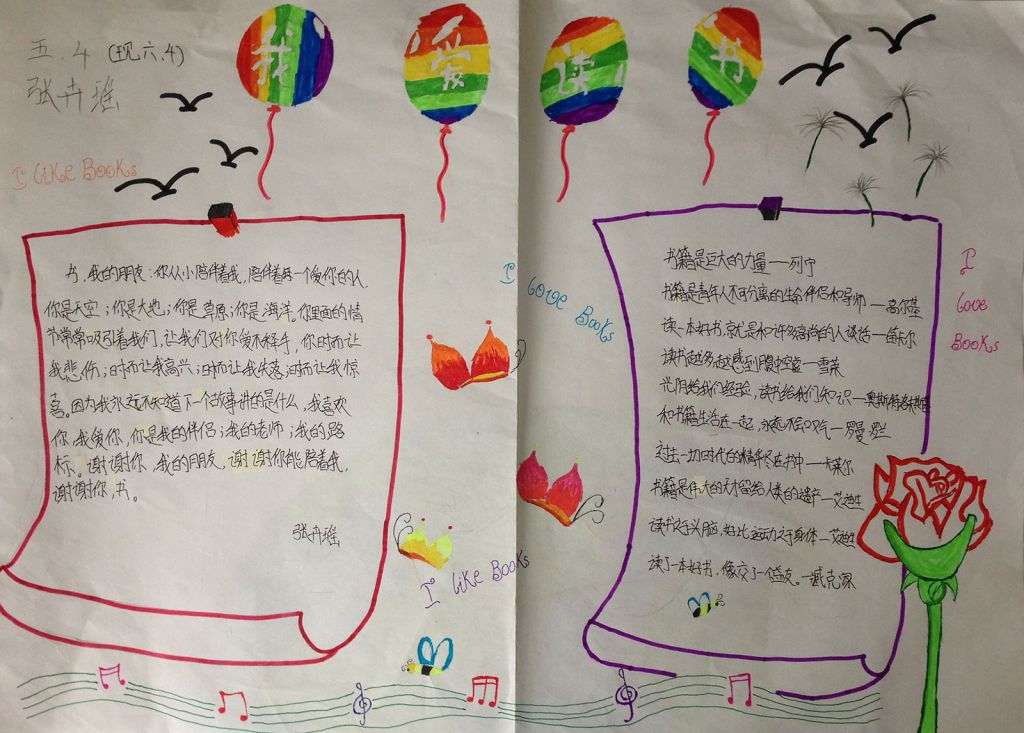 五.4(现六.4)
张卉瑶
我爱读书
I like Books
书,我的朋友:你从小陪伴着我,陪伴着每一个爱你的人.
你是天空;你是大地;你是草原;你是海洋。你里面的情
节常常吸引着我们,让我们对你爱不释手,你时而让
我悲伤;时而让我高兴;时而让我失落;时而让我惊
喜。因为我永远不知道下一个故事讲的是什么,我喜欢
你,我爱你,你是我的伴侣;我的老师;我的路
标。谢谢你,我的朋友,谢谢你能陪着我,
谢谢你,书。
张卉瑶
I love Books
I like Books
书籍是巨大的力量——列宁
书籍是青年人不可分离的生命伴侣和导师——高尔基
读一本好书,就是和许多高尚的人谈话——笛卡尔
读书越多越感到腹中空虚——雪莱
光阴给我们经验,读书给我们知识——奥斯特洛夫斯基
和书籍生活在一起,永远不会叹气——罗曼罗兰
过去一切时代的精华尽在书中——卡莱尔
书籍是伟大的天才留给人类的遗产——艾迪生
读书之于头脑,好比运动之于身体——艾迪生
读了一本好书,像交了一个益友。——臧克家
I
love
Books